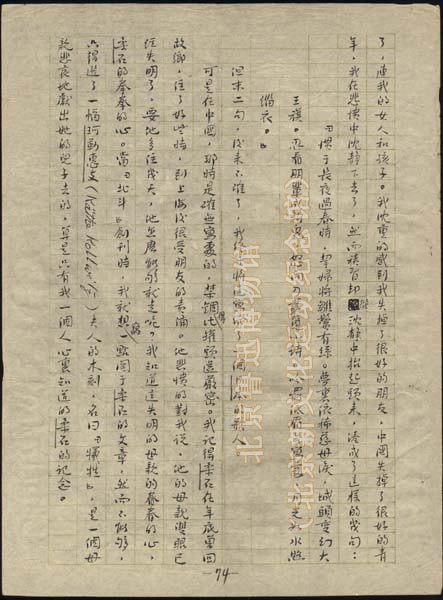 了，連我的女人和孩子。我沈重的感到我失掉了很好的朋友，中國失掉了很好的青
年，我在悲憤中沈靜下去了，然而積習却從沈靜中抬起頭來，湊成了這樣的幾句：
『慣于長夜過春時，挈婦將雛鬢有絲。夢裏依稀慈母淚，城頭變幻大
王旗。忍看朋輩成新鬼，怒向刀叢覓小詩。吟罷低眉無寫處，月光如水照
緇衣。』
但末二句，後來不確了，我終于將這寫給了一個日本的歌人。
可是在中國，那時是確無寫處的，禁錮得比罐頭還嚴密。我記得柔石在年底曾回
故鄉，住了好些時，到上海後很受朋友的責備。他悲憤的對我說，他的母親雙眼已
經失明了，要他多住幾天，他怎麼能夠就走呢？我知道這失明的母親的眷眷的心，
柔石的拳拳的心。當『北斗』創刊時，我就想寫一點關于柔石的文章，然而不能夠，
只得選了一幅珂勒惠支(Käthe Kollwitz)夫人的木刻，名曰『犧牲』，是一個母
親悲哀地獻出她的兒子去的，算是只有我一個人心裏知道的柔石的記念。
—74—
北京鲁迅博物馆
（北京新文化运动纪念馆）